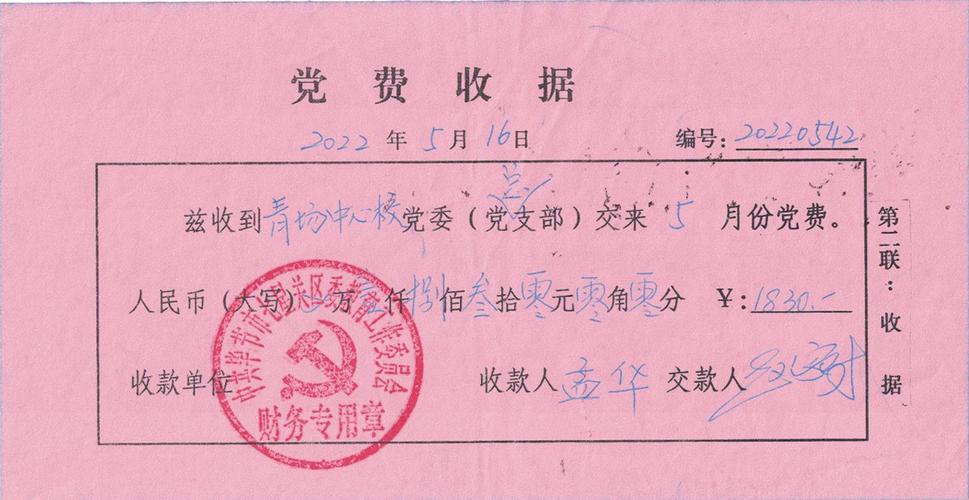 党费收据
2022年5月16日 编号：20220542
兹收到青场中心校党委（党总支部）交来5月份党费。
人民币（大写）万壹仟捌佰叁拾零元零角零分 ￥：1830.-
收款单位 收款人孟华 交款人
中共毕节市七星关区委教育工作委员会
财务专用章
第二联：收据